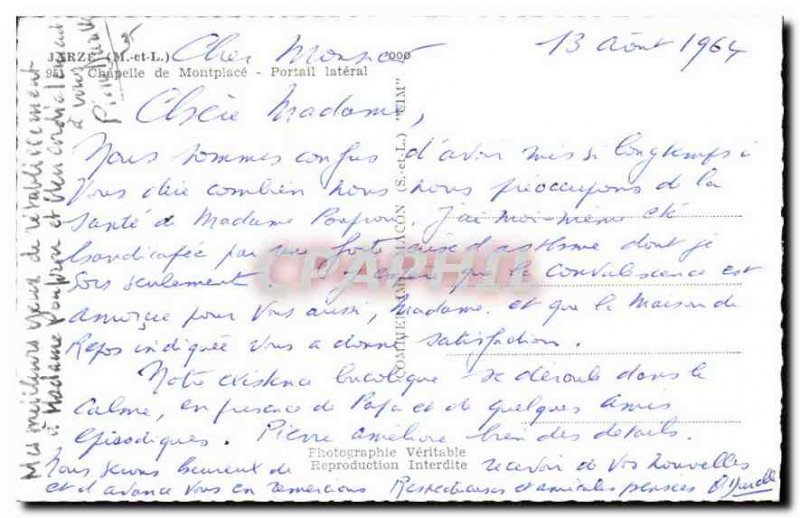 JARZÉ (M.-et-L.)
Chapelle de Montplacé - Portail latéral
Cher Monsieur 13 août 1964
Chère Madame,
Nous sommes confus d'avoir mis si longtemps à
vous dire combien nous nous préoccupons de la
santé de Madame Poupron. J'ai moi-même été
handicapée par une forte crise d'asthme dont je
sors seulement. J'espère que la convalescence est
amorçée pour vous aussi, Madame, et que la Maison de
Repos indiquée vous a donné satisfaction.
Notre existence bucolique se déroule dans le
calme, en présence de Papa et de quelques amis
épisodiques. Pierre améliore bien des détails.
Nous serons heureux de recevoir de vos nouvelles
et d'avance vous en remercions Respectueuses et amicales pensées
Photographie Véritable
Reproduction Interdite
COMBIER IMP. MACON (S.-et-L.) "CIM"
Mes meilleurs vœux de rétablissement
à Madame Poupron et bien cordialement
à vous
CPAPHIL